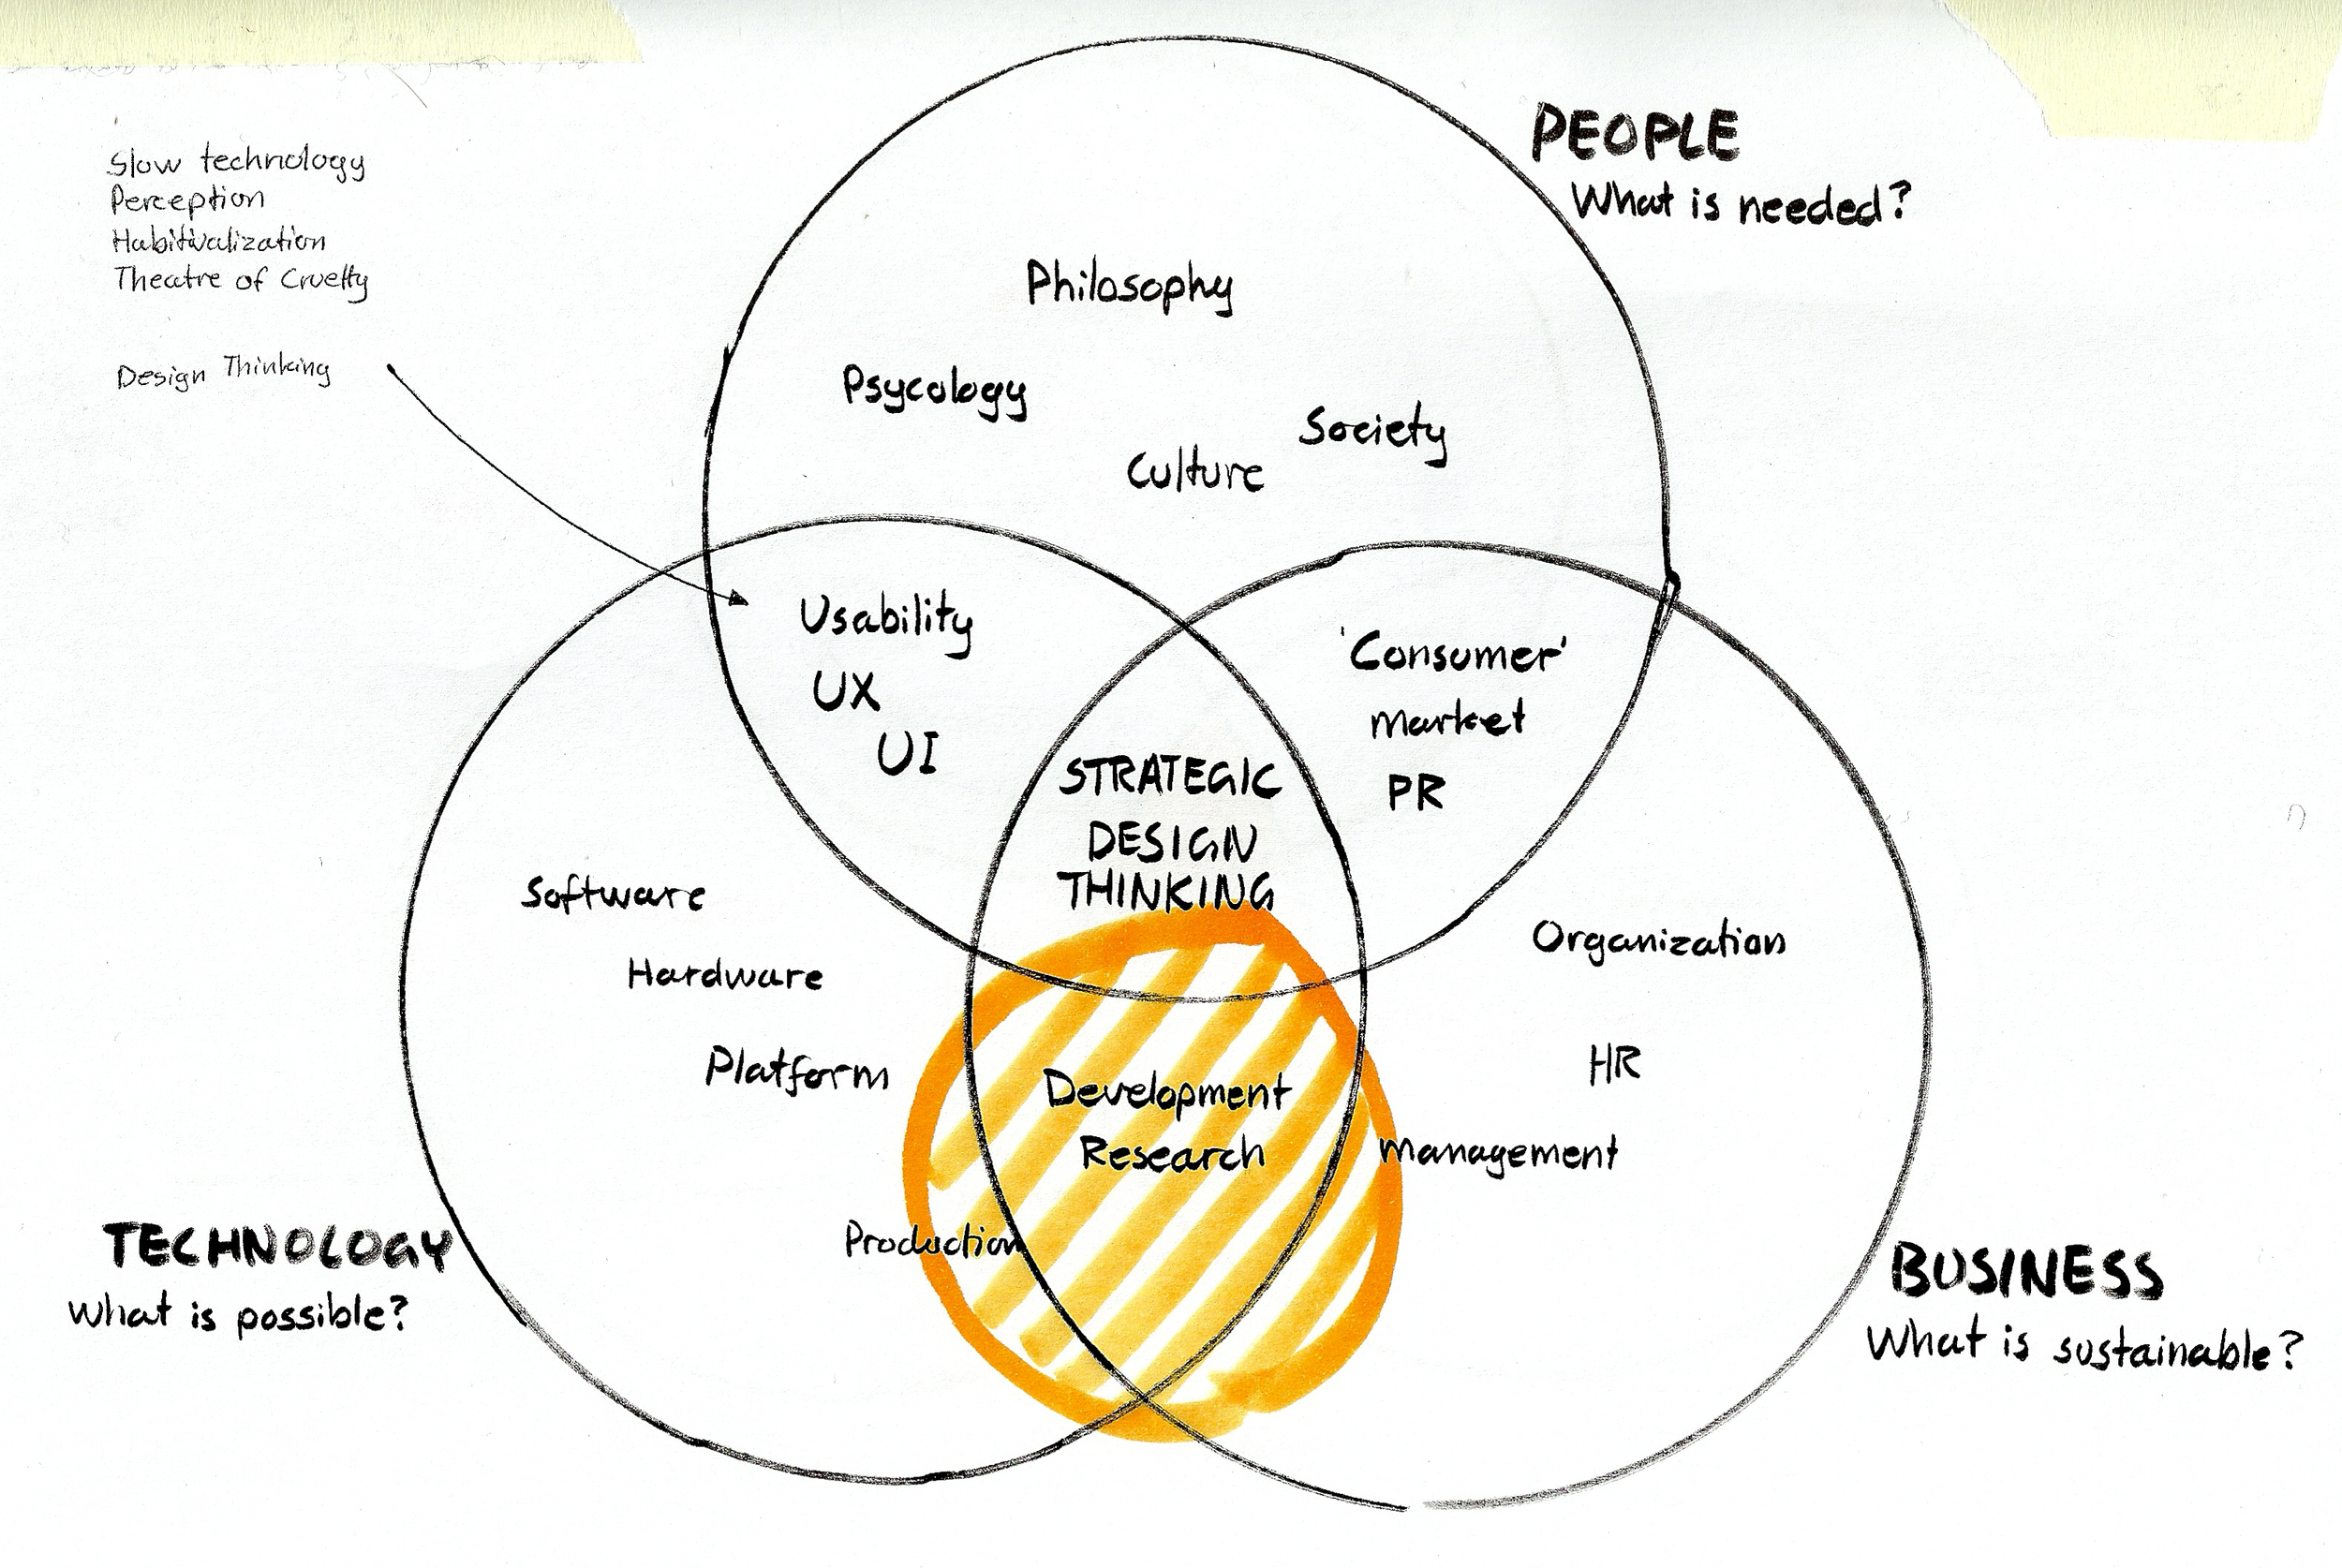 PEOPLE
What is needed?
Slow technology
Perception
Habitualization
Theatre of Cruelty
Design Thinking
Philosophy
Psycology
Society
Culture
Usability
UX
UI
'Consumer'
market
PR
STRATEGIC
DESIGN
THINKING
Software
Hardware
Platform
Production
Development
Research
Organization
HR
management
TECHNOLOGY
What is possible?
BUSINESS
What is sustainable?